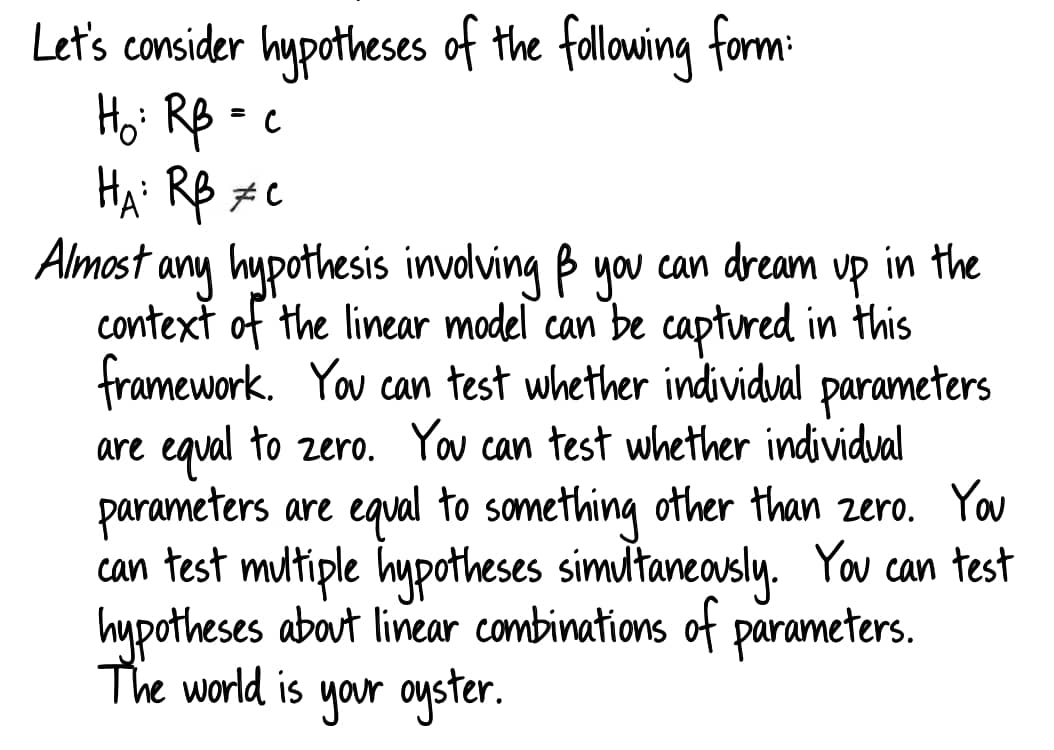 Let's consider hypotheses of the following form:
H₀: Rβ = c
H_A: Rβ ≠ c
Almost any hypothesis involving β you can dream up in the
context of the linear model can be captured in this
framework. You can test whether individual parameters
are equal to zero. You can test whether individual
parameters are equal to something other than zero. You
can test multiple hypotheses simultaneously. You can test
hypotheses about linear combinations of parameters.
The world is your oyster.